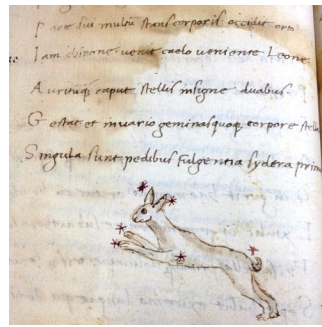 Parte sui multum trans corporis occidit orto
Iam chirone venit caelo veniente Leone
Auritumq caput stellis insigne duabus
Gestat et in vario geminas quoq corpore stellas
Singula sunt pedibus fulgentia sydera primis